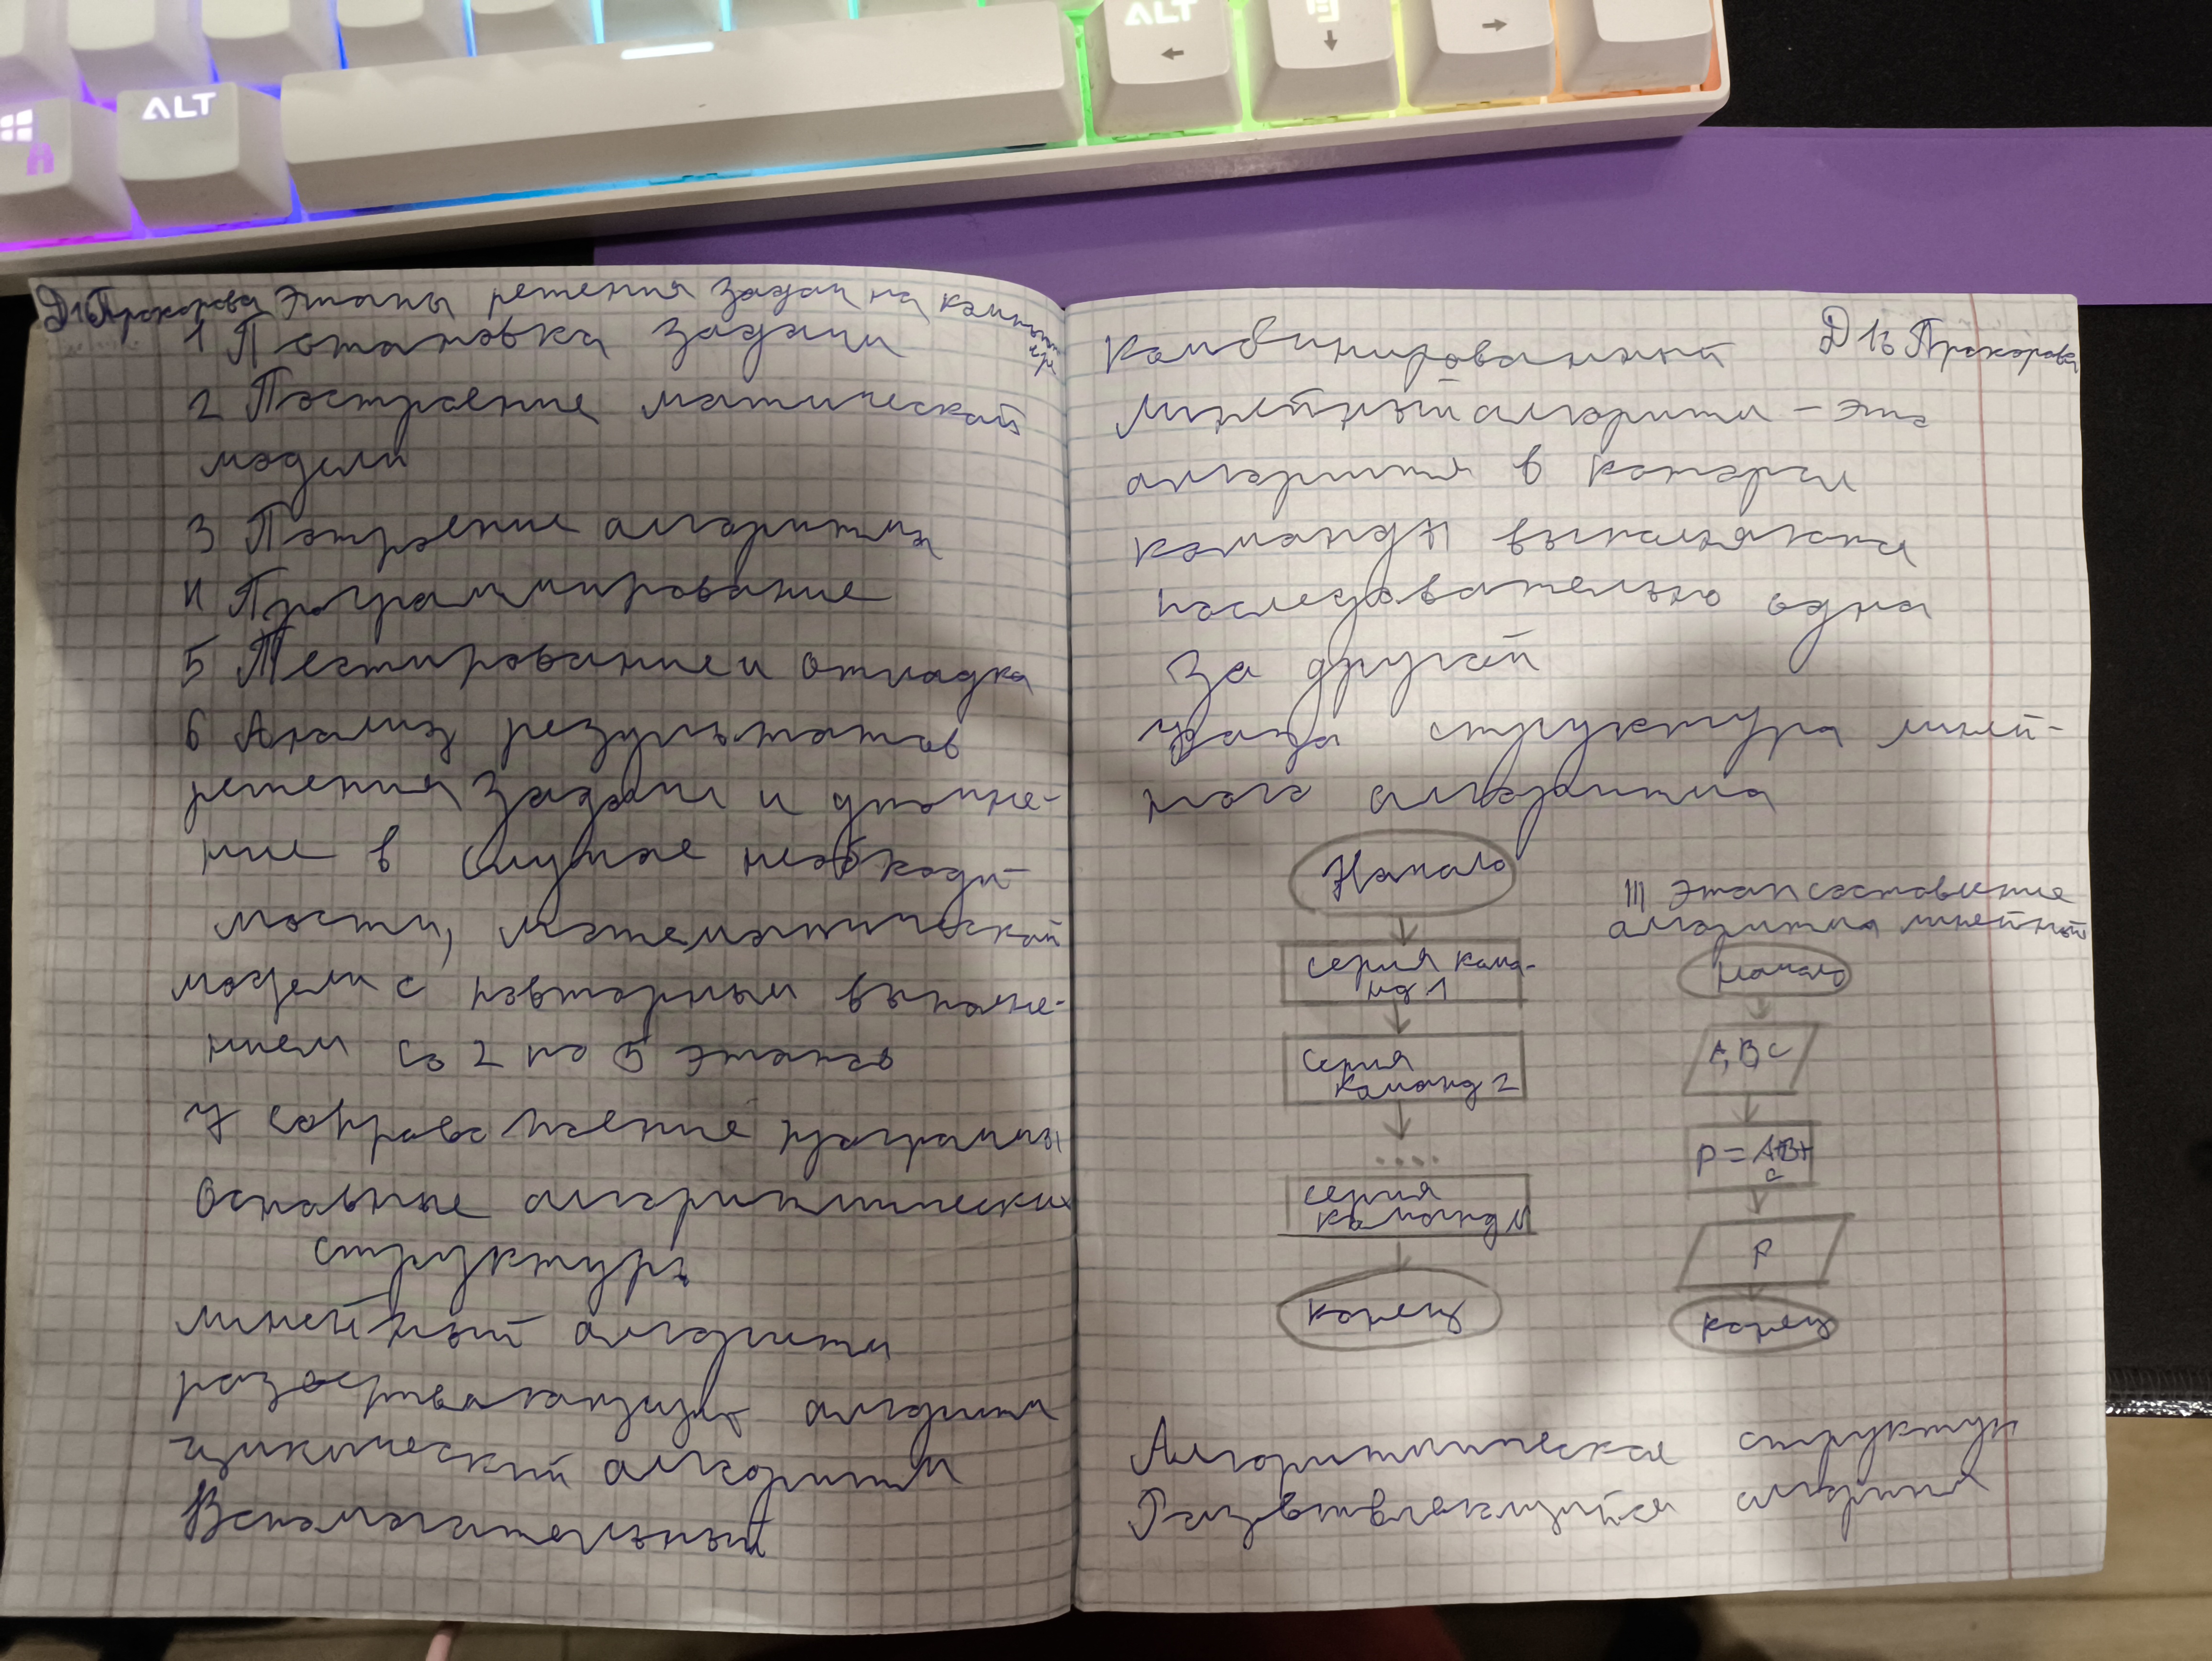 ALT
ALT
Д1б Прохорова Этапы решения задач на компьютере
1 Постановка задачи
2 Построение матической
модели
3 Потроение алгоритма
4 Программирование
5 Тестирование и отладка
6 Анализ результатов
решения задачи и уточне-
ние в случае необходи-
мости, математической
модели с повторным выполне-
нием со 2 по 5 этапа
7 Сопровожение программы
Основные алгоритмические
структуры
линейный алгоритм
алгоритм
циклический алгоритм
Вспомогательный
Д1б Прохорова
Комбинированный
Линейный алгоритм - это
алгоритм в котором
команды выполняются
последовательно одна
за другой
структура линей-
ного алгоритма
Начало
серия кома-
нд 1
серия
команд 2
....
серия
команд N
конец
III Этап составление
алгоритма линейный
начало
A, B, C
P = A+B+
C
P
конец
Алгоритмическая структура
Разветвляющийся алгоритм